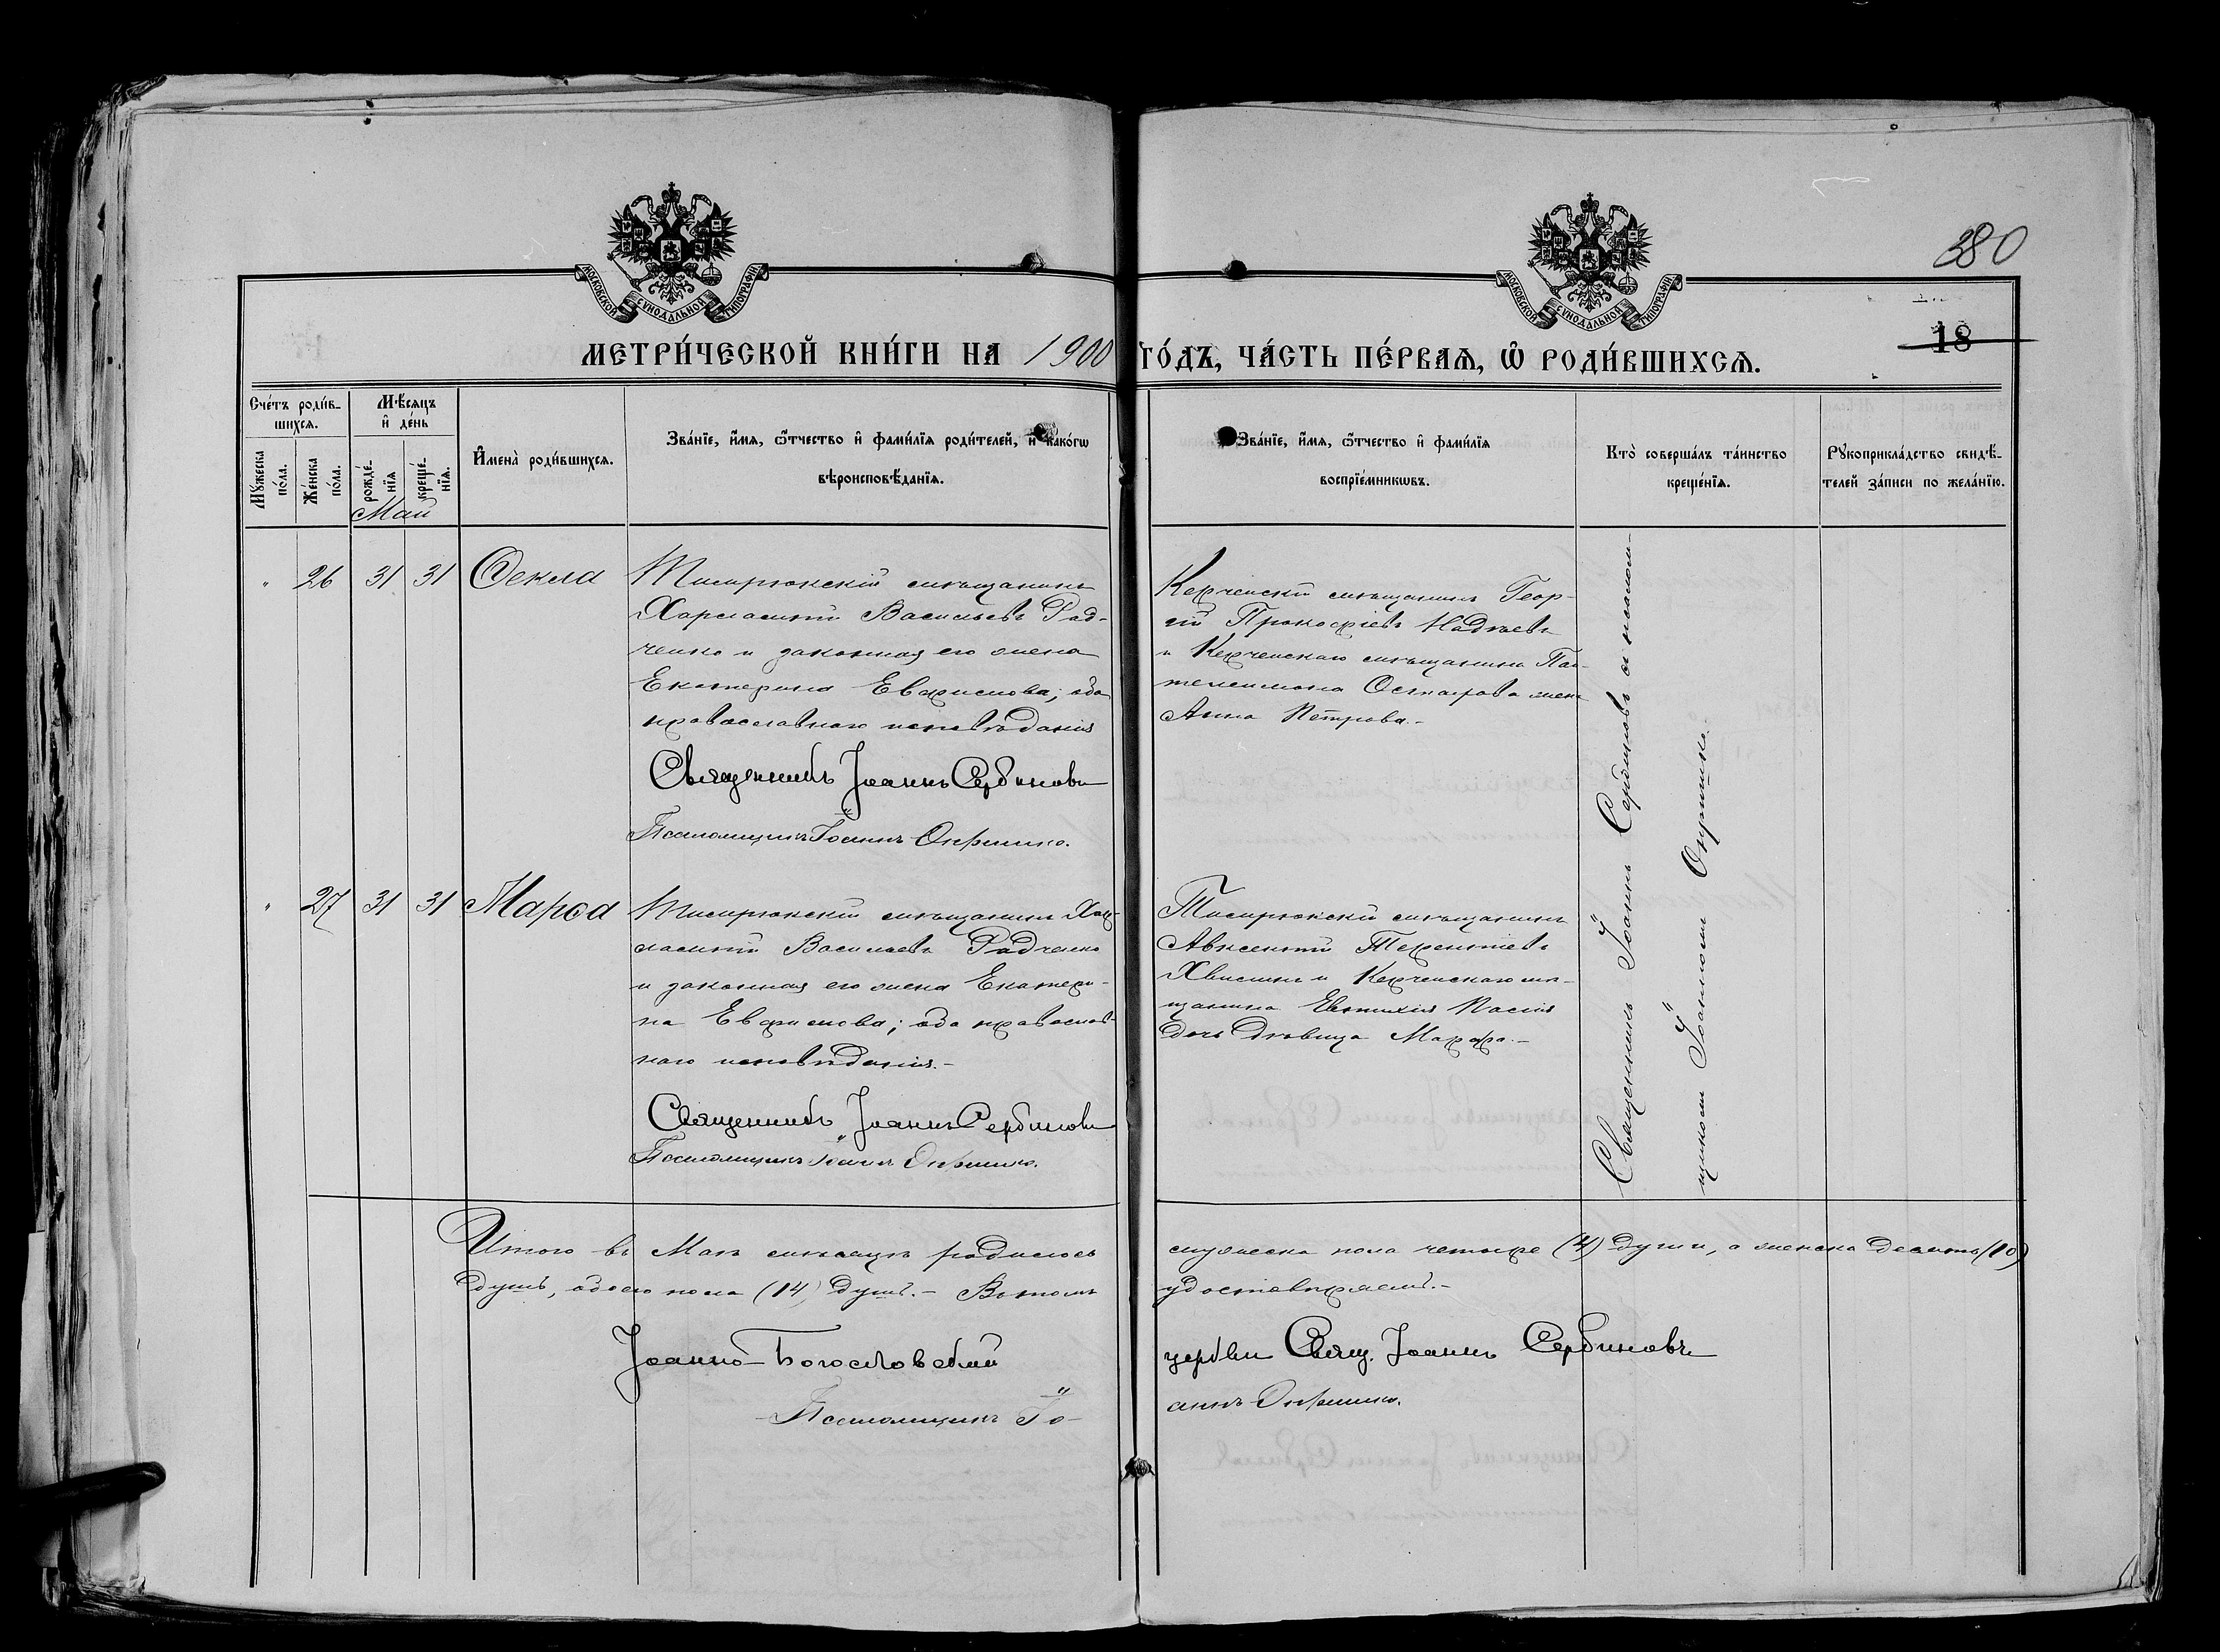 280
МОСКОВСКОЙ СУНОДАЛЬНОЙ ТИПОГРАФІИ
МОСКОВСКОЙ СУНОДАЛЬНОЙ ТИПОГРАФІИ
18
МЕТРИ́ЧЕСКОЙ КНИ́ГИ НА 1900 ГО́ДЪ, ЧА́СТЬ ПЕ́РВАѦ, Ѽ РОДИ́ВШИХСѦ.
Сче́тъ роди́в-
шихсѧ.
Мꙋ́жеска по́ла.
Же́нска по́ла.
Мѣ́сѧцъ
и҆ де́нь
рожде́-
нїѧ
креще́-
нїѧ.
Май
И҆мена̀ роди́вшихсѧ.
Зва́нїе, и҆́мѧ, ѻ҆́тчество и҆ фами́лїѧ роди́телей, и҆ како́гѡ
вѣроисповѣ́данїѧ.
Зва́нїе, и҆́мѧ, ѻ҆́тчество и҆ фами́лїѧ
воспрїе́мникѡвъ.
Кто̀ соверша́лъ та́инство
креще́нїѧ.
Рꙋкоприкла́дство свидѣ́-
телей за́писи по жела́нїю.
" 26 31 31 Ѳекла
Темрюкскій мѣщанинъ
Харлампій Васильевъ Рад-
ченко и законная его жена
Екатерина Евфимова; оба
православнаго исповѣданія
Священникъ Іоаннъ Сербиновъ
Псаломщикъ Іоаннъ Онришко.
Керченскій мѣщанинъ Геор-
гій Прокофіевъ
и Керченскаго мѣщанина Пан-
телеимона жена
Анна Петрова.-
Священникъ Іоаннъ Сербиновъ съ псалом-
щикомъ Іоанномъ Онришко.
" 27 31 31 Марѳа
Темрюкскій мѣщанинъ Хар-
лампій Васильевъ Радченко
и законная его жена Екатери-
на Евфимова; оба православ-
наго исповѣданія.-
Священникъ Іоаннъ Сербиновъ
Псаломщикъ Іоаннъ Онришко.
Темрюкскій мѣщанинъ
Авксентій Терентіевъ
и Керченскаго мѣ-
щанина Евтихія
дочь дѣвица Марфа.-
Итого въ Маѣ мѣсяцѣ родилось мужеска пола четыре (4) души, а женска десять (10)
душъ, обоего пола (14) душъ.- Въ томъ удостовѣряемъ.-
Іоанно-Богословской церкви Свящ. Іоаннъ Сербиновъ
Псаломщикъ Іо-
аннъ Онришко.